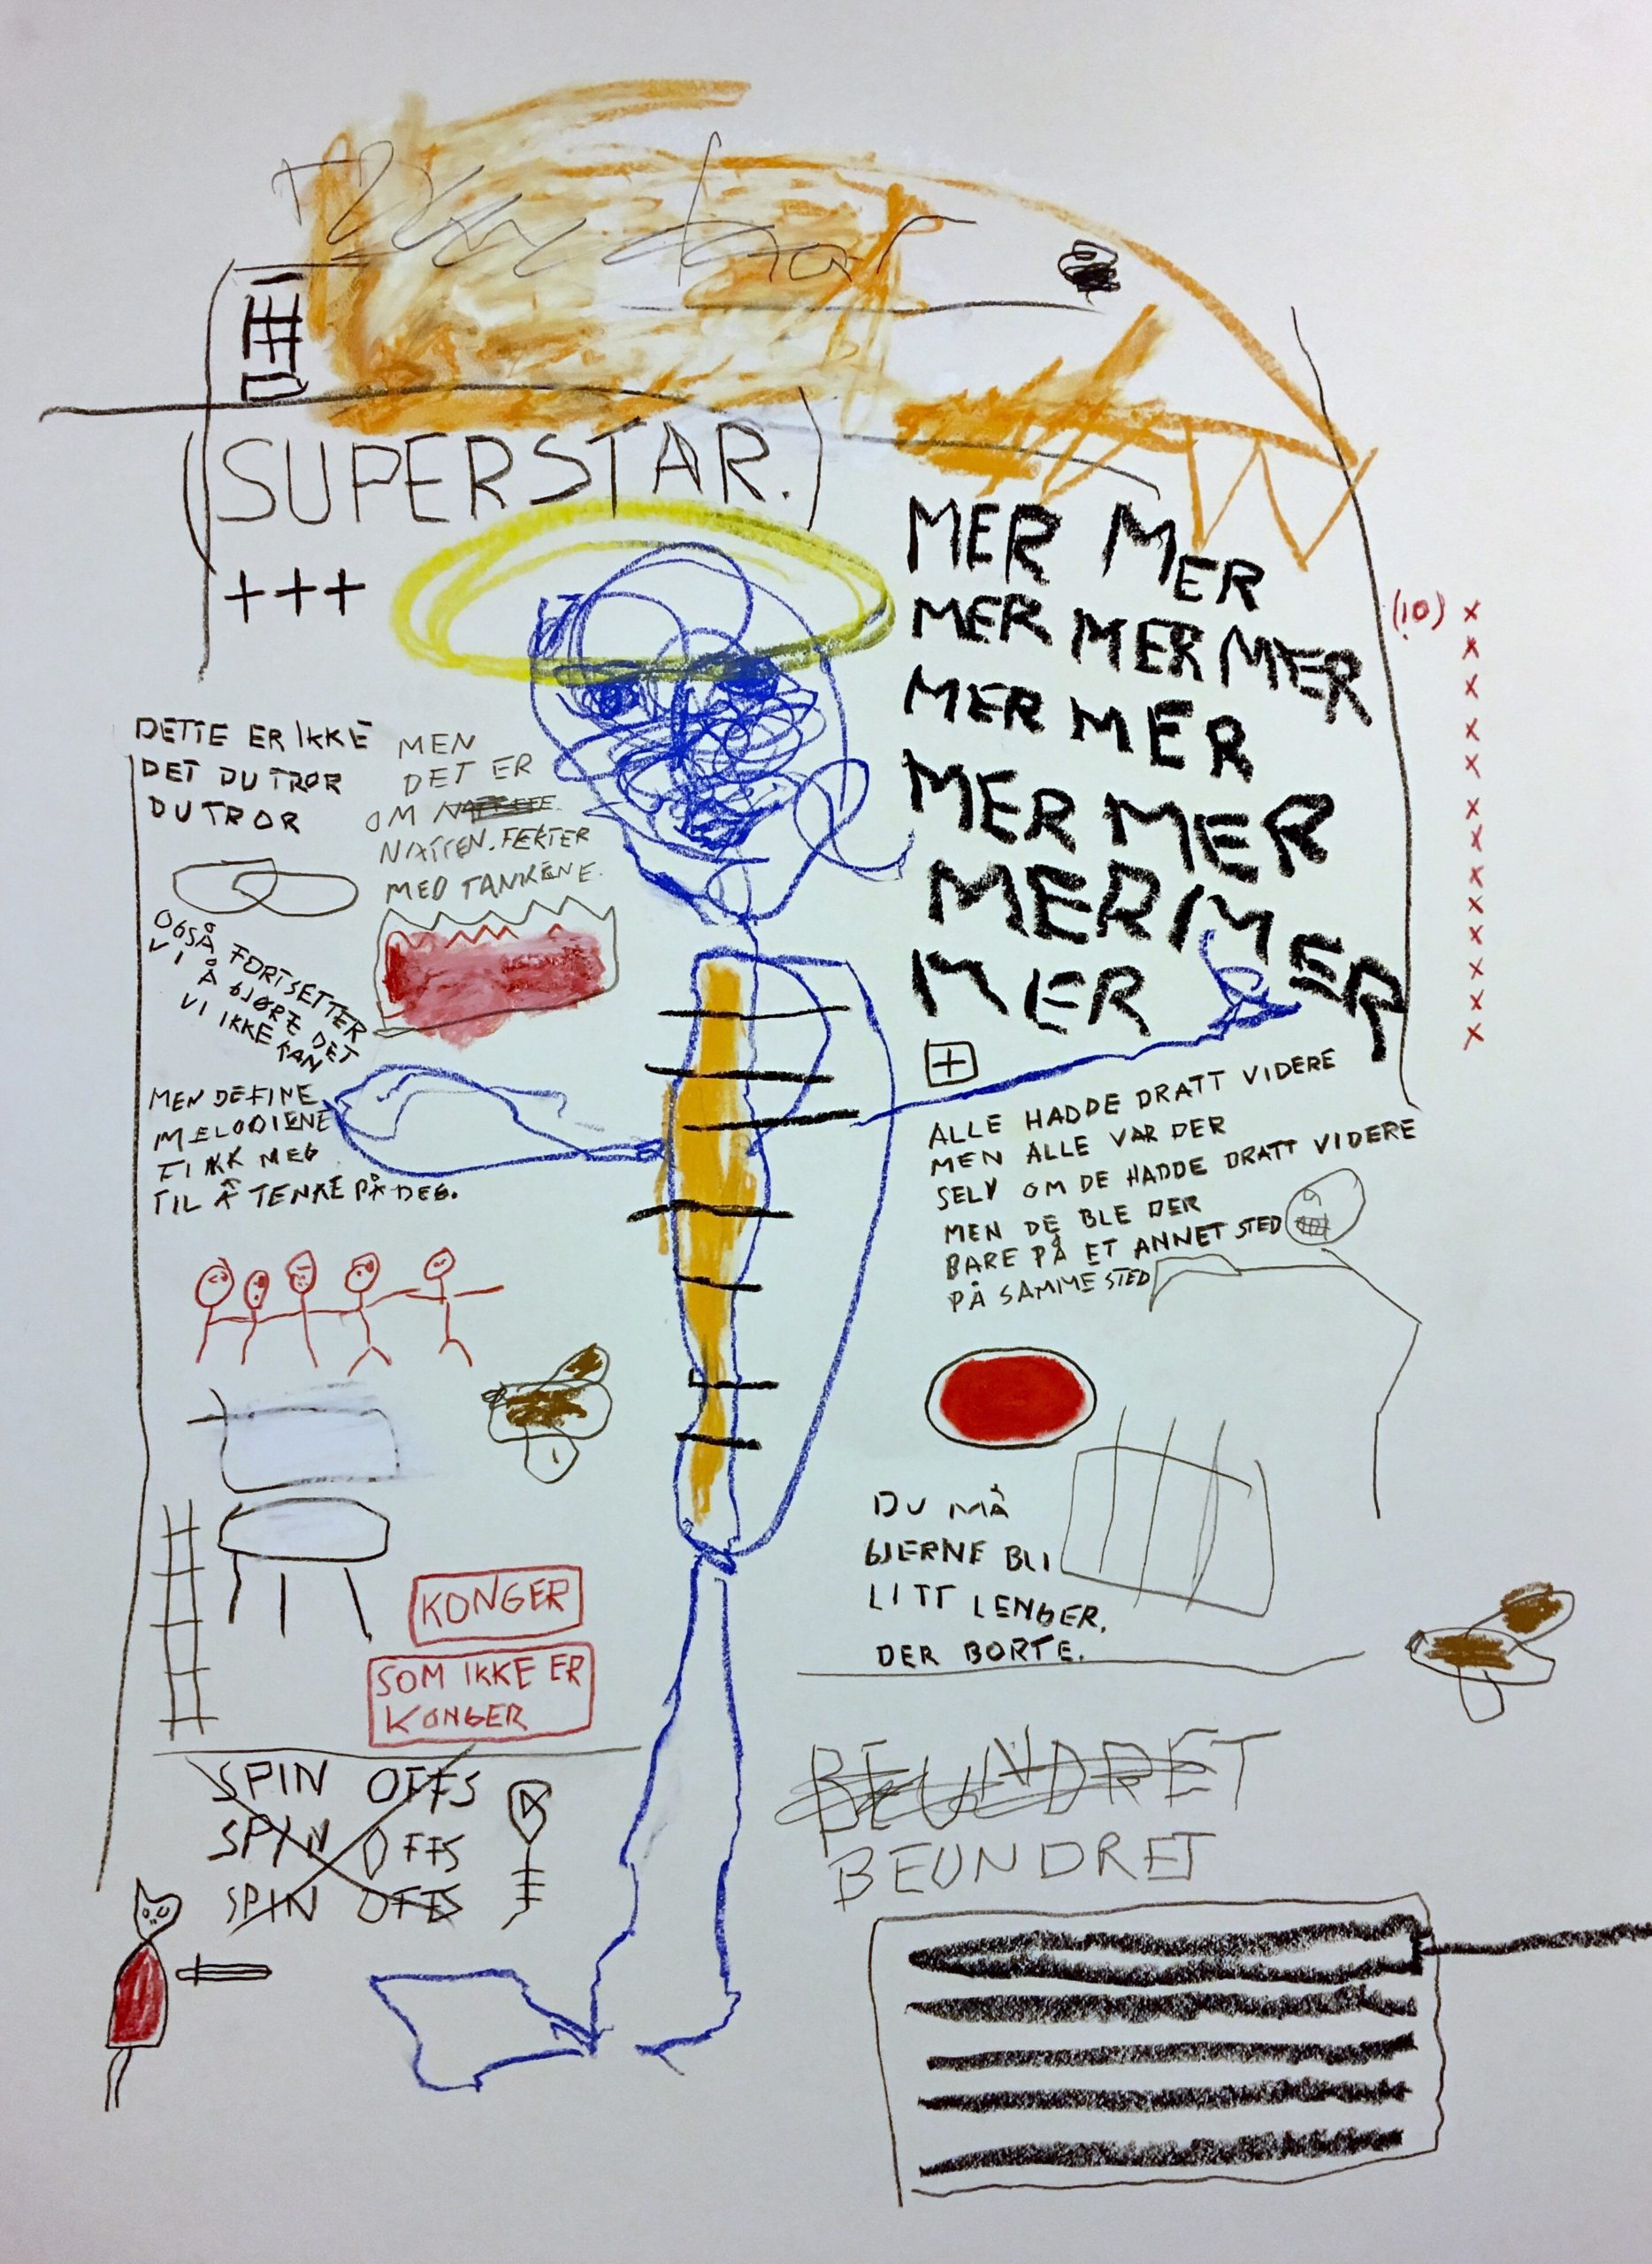 (SUPERSTAR.)
+++
MER MER
MER MER MER
MER MER
MER MER
MER MER
MER
(10) x
x
x
x
x
x
x
x
x
x
x
x
x
DETTE ER IKKE
DET DU TROR
DU TROR
MEN
DET ER
OM
NATTEN. FEKTER
MED TANKENE.
OGSÅ FORTSETTER
VI Å GJØRE DET
VI IKKE KAN
MEN DE FINE
MELODIENE
FIKK MEG
TIL Å TENKE PÅ DEG.
+
ALLE HADDE DRATT VIDERE
MEN ALLE VAR DER
SELV OM DE HADDE DRATT VIDERE
MEN DE BLE DER
BARE PÅ ET ANNET STED
PÅ SAMME STED
DU MÅ
GJERNE BLI
LITT LENGER.
DER BORTE.
KONGER
SOM IKKE ER
KONGER
SPIN OFFS
SPIN OFFS
SPIN OFFS
BEUNDRET
BEUNDRET